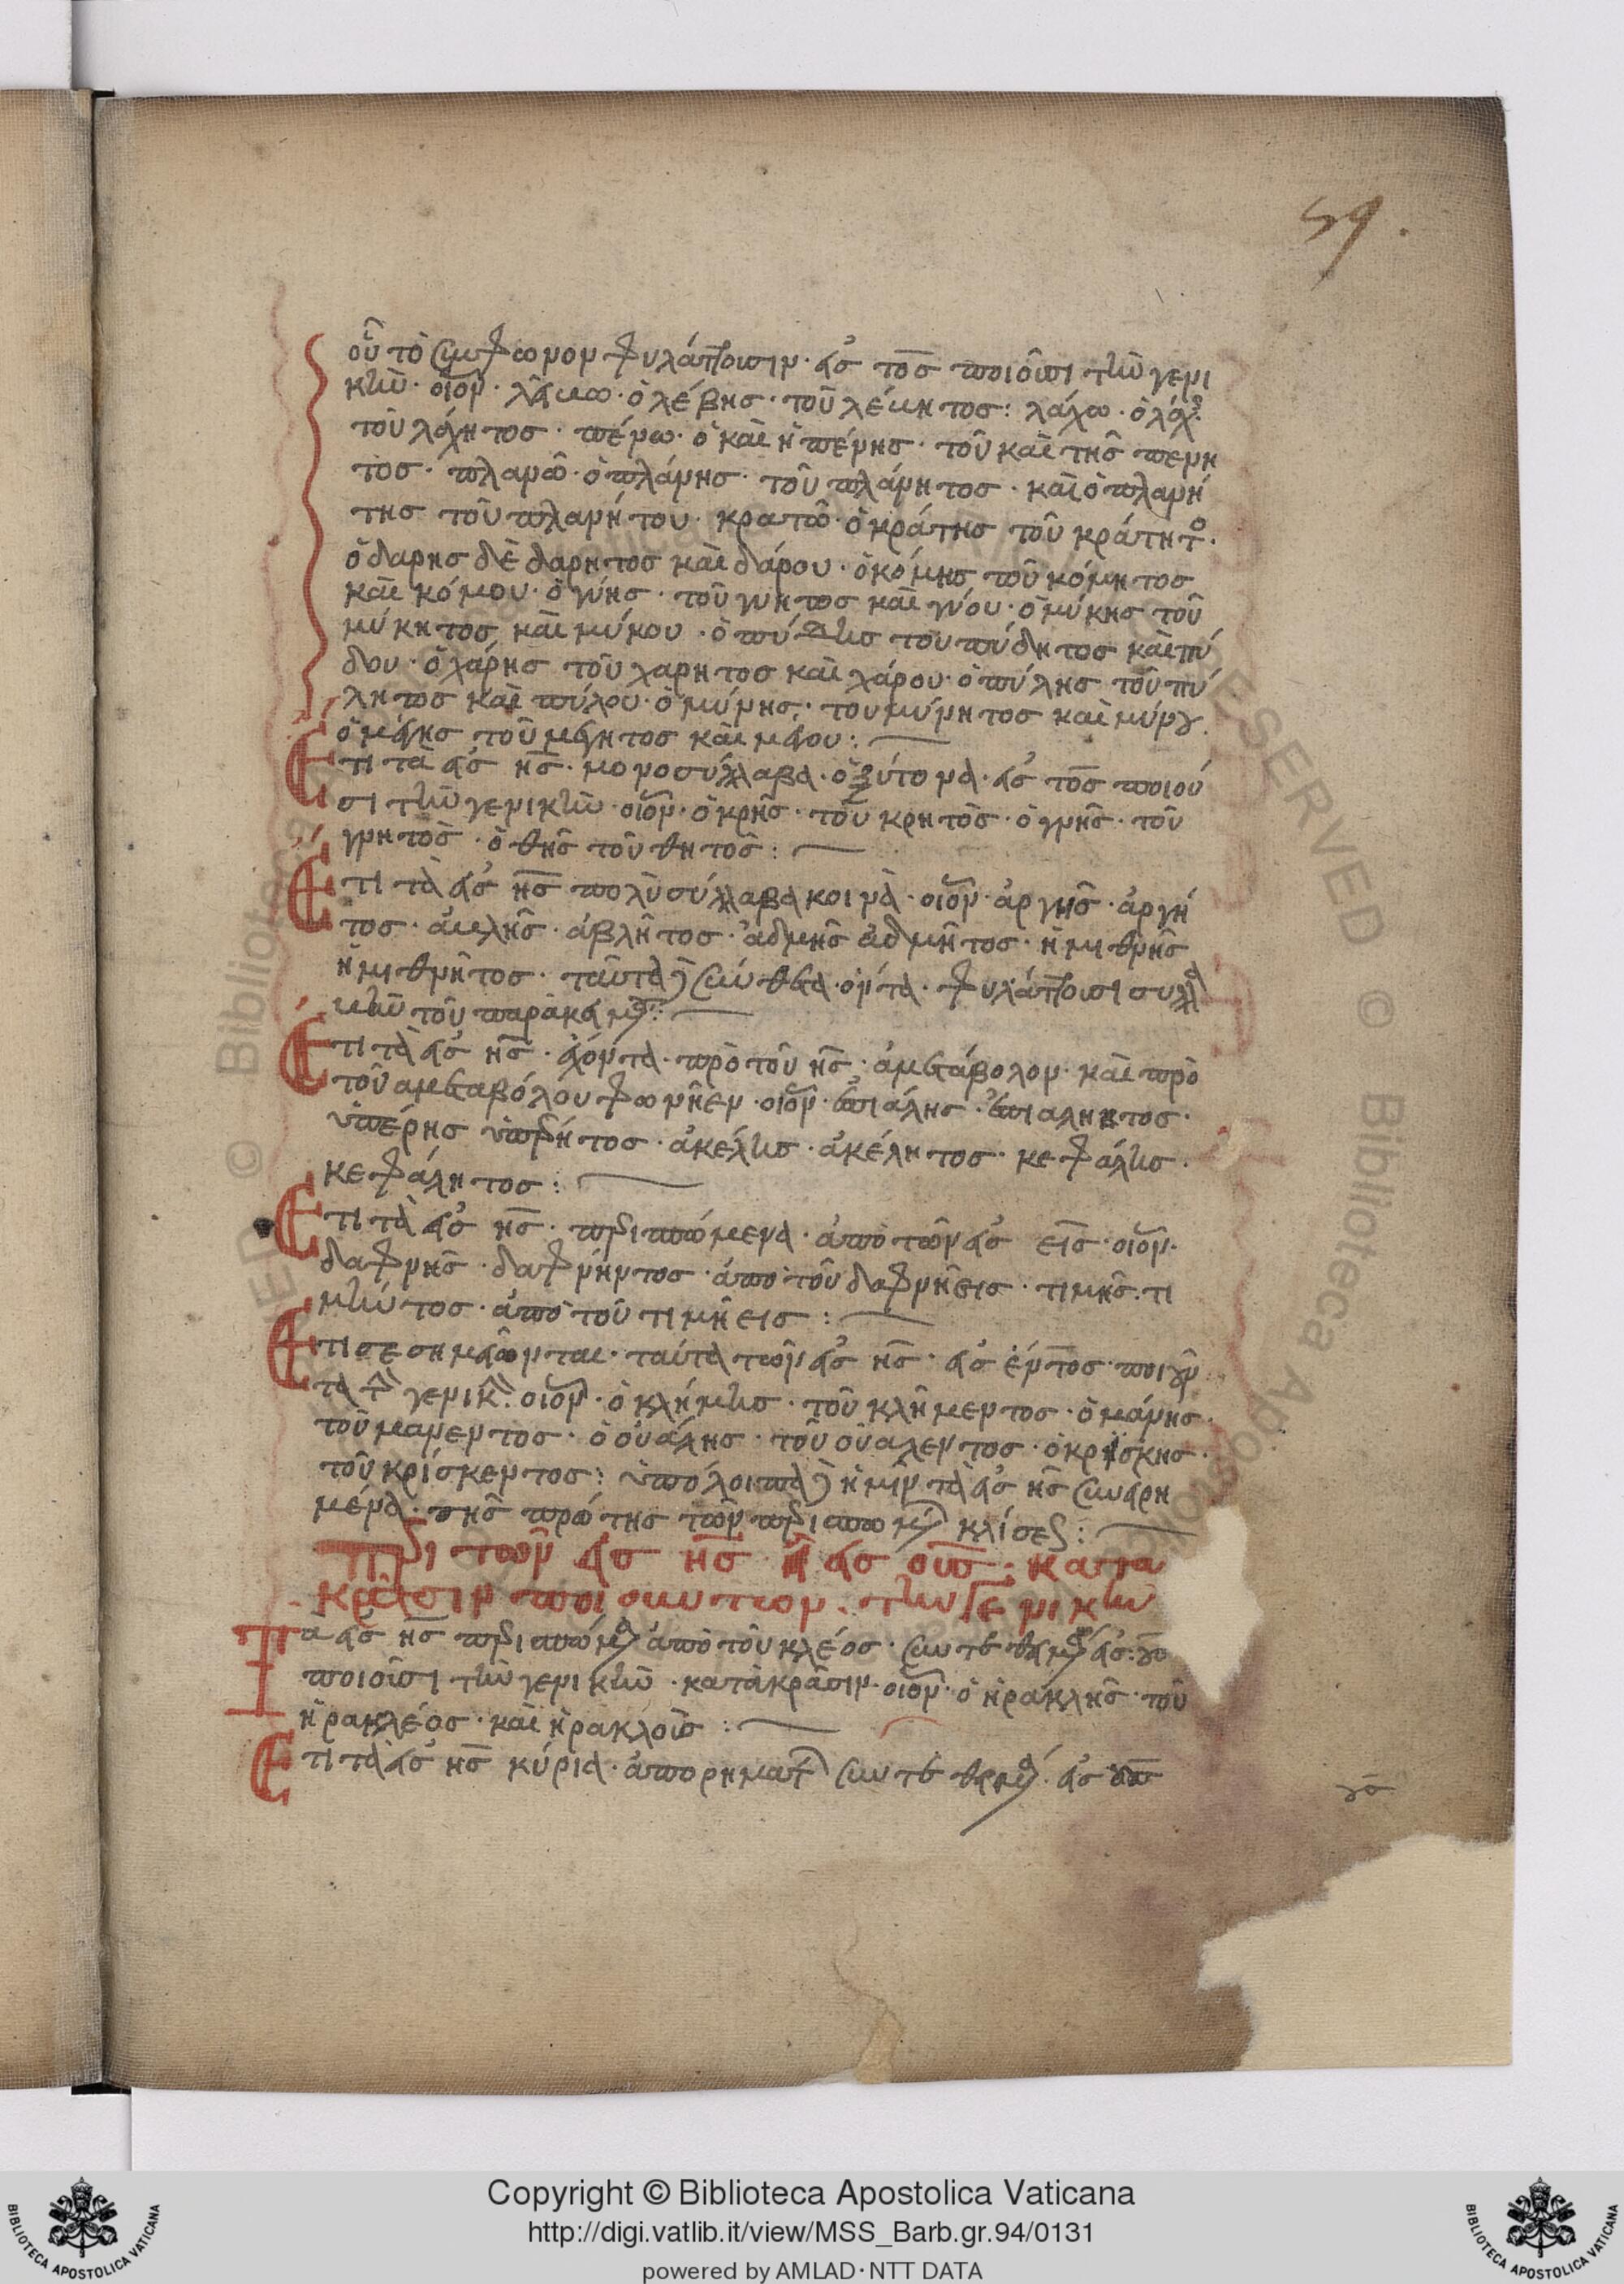 59.
οὗ τὸ σύμφωνον φυλάττουσιν· εἰς τος ποιοῦσι τὴν γενι
κήν· οἷον· λάβω· ὁ λέβης· τοῦ λέβητος: λάχω· ὁ λάχης
τοῦ λάχητος· πένω· ὁ καὶ ἡ πένης· τοῦ καὶ τῆς πενη
τος· πλανῶ· ὁ πλάνης· τοῦ πλάνητος· καὶ ὁ πλανή
της τοῦ πλανήτου· κρατῶ· ὁ κράτης τοῦ κράτητο·
ὁ δαρης δὲ δαρητος καὶ δάρου· ὁ κόμης τοῦ κόμητος
καὶ κόμου· ὁ γύης· τοῦ γυητος καὶ γύου· ὁ μύκης τοῦ
μύκητος καὶ μύκου· ὁ πύδης του πύδητος καὶ πύ
δου· ὁ χάρης τοῦ χαρητος καὶ χάρου· ὁ πύλης τοῦ πύ
λητος καὶ πύλου· ὁ μύνης· του μύνητος καὶ μύνου
ὁ μάγης τοῦ μάγητος καὶ μάγου:
Ετι τὰ εἰς ης· μονοσύλλαβα· ὀξύτονα· εἰς τος ποιοῦ
σι τὴν γενικὴν· οἷον· ὁ κρὴς· τοῦ κρητὸς· ὁ γνὴς· τοῦ
γνητὸς· ὁ θὴς τοῦ θητὸς:
Ετι τὰ εἰς ης πολυσύλλαβα κοινὰ· οἷον· ἀργὴς· ἀργῆ
τος· ἀβλὴς· ἀβλῆτος· ἀδμὴς ἀδμῆτος· ἡμιθνὴς
ἡμιθνῆτος· ταῦτα σύνθετα ὄντα· φυλάττουσι συλλα
βὴν τοῦ παρακειμ:
Ετι τὰ εἰς ης· ἔχοντα· πρὸ τοῦ ης· ἀμετάβολον· καὶ πρὸ
τοῦ αμεταβόλου φωνῆεν· οἷον· ἐπιάλης· ἐπιαλητος·
ὑπέρης ὑπερήτος· ἀκέλης· ἀκέλητος· κεφάλης·
κεφάλητος:
Ετι τὰ εἰς ης· περισπώμενα· ἀπὸ τῶν εἰς εις· οἷον·
δαφνῆς· δαφνήντος· ἀπὸ τοῦ δαφνῆεις· τιμῆς· τι
μῆντος· ἀπὸ τοῦ τιμῆεις:
Ετι σεσημείωνται· ταῦτα τῶν εἰς ης· εἰς έντος· ποιοῦν
τα τὴν γενικ. οἷον· ὁ κλήμης· τοῦ κλῆμεντος· ὁ μάνης·
τοῦ μανεντος· ὁ οὐάλης· τοῦ οὐαλεντος· ὁ κρίσκης·
τοῦ κρίσκεντος: ὑπόλοιπα ἡμῖν τὰ εἰς ης συνῃρη
μένα· τῆς πρώτης τῶν περισπωμ κλίσεως:
Περὶ τῶν εἰς ης εἰς ους: κατα
κράσιν ποιούντων· τὴν γενικὴν
Τα εἰς ης περισπώμ ἀπὸ τοῦ κλέος· συντεθειμ εἰς· ους
ποιοῦσι τὴν γενικὴν· κατὰ κρᾶσιν· οἷον· ὁ ἡρακλῆς· τοῦ
ἡρακλέος· καὶ ἡρακλοῦς:
Ετι τὰ εἰς ης κύρια· ἀπὸ ρηματ συντεθειμ· εἰς ους
Copyright © Biblioteca Apostolica Vaticana
http://digi.vatlib.it/view/MSS_Barb.gr.94/0131
powered by AMLAD · NTT DATA
BIBLIOTECA APOSTOLICA VATICANA
BIBLIOTECA APOSTOLICA VATICANA